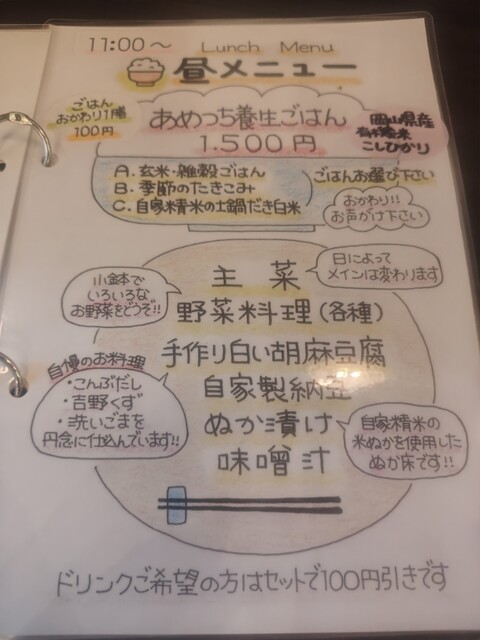 11:00〜 Lunch Menu
昼メニュー
ごはん
おかわり1膳
100円
あめつち養生ごはん
1.500円
岡山県産
こしひかり
A. 玄米・雑穀ごはん
B. 季節のたきこみ
C. 自家精米の土鍋だき白米
ごはんお選び下さい
おかわり!!
お声がけ下さい
主菜
日によって
メインは変わります
小鉢で
いろいろな
お野菜をどうぞ!!
野菜料理(各種)
手作り白い胡麻豆腐
自慢のお料理
・こんぶだし
・吉野くず
・洗いごまを
丹念に仕込んでいます!!
自家製納豆
ぬか漬け
自家精米の
米ぬかを使用した
ぬか床です!!
味噌汁
ドリンクご希望の方はセットで100円引きです